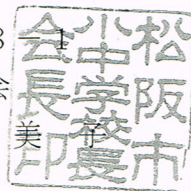 松阪市
小中学校長
会長印
-1
美